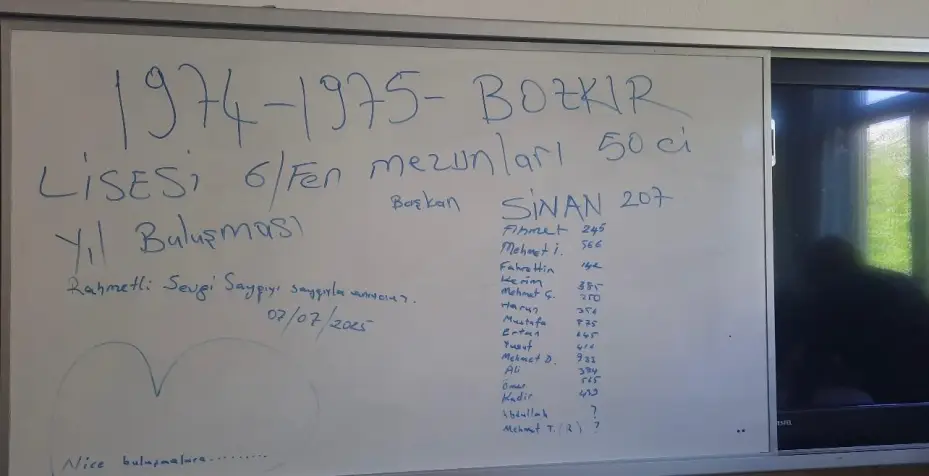 1974-1975- BOZKIR
LİSESİ 6/Fen mezunları 50 ci
Yıl Buluşması
Başkan SİNAN 207
Ahmet 245
Mehmet İ. 566
Fahrettin
Kerim 385
Mehmet Ç. 250
Harun
Mustafa 975
Ertan
Yusuf
Mehmet D. 933
Ali 394
Ömer 565
Kadir
Abdullah ?
Mehmet T. (2) ?
Rahmetli Sevgi Saygıyı saygıyla anıyoruz.
07/07/2025
Nice buluşmalara.........